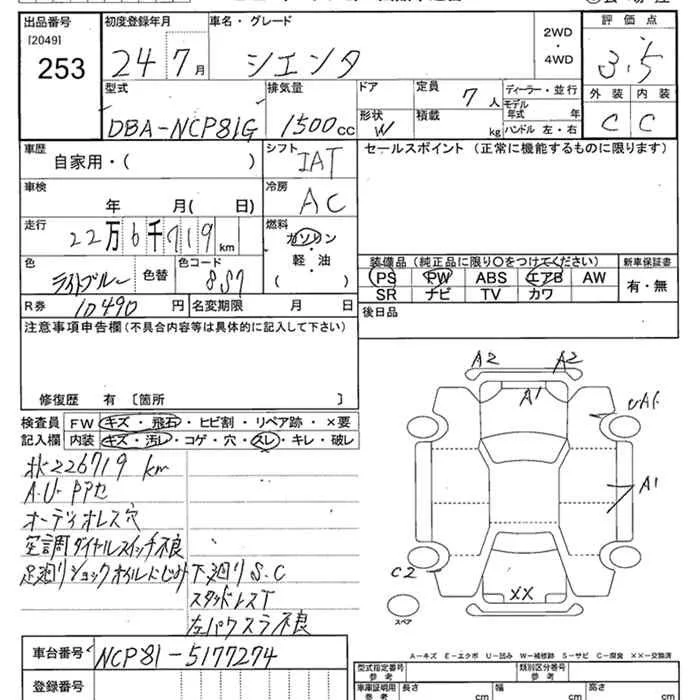 出品番号 初度登録年月 車名・グレード 評価点
[2049]
253
24年 7月 シエンタ 2WD・4WD 3.5
型式 排気量 ドア 定員 ディーラー・並行 外装 内装
DBA-NCP81G 1500cc 7人 モデル年式 年 C C
形状 W 積載 kg ハンドル 左・右
車歴 シフト セールスポイント (正常に機能するものに限ります)
自家用・( ) IAT
車検 冷房
年 月( 日) AC
走行 燃料
22万6千719km ガソリン・軽・油 ( )
装備品 (純正品に限り○をつけてください) 新車保証書
色 色替 色コード PS PW ABS エアB AW 有・無
ライトブルー 8S7 SR ナビ TV カワ
R券 10490円 名変期限 月 日 後日品
注意事項申告欄 (不具合内容等は具体的に記入して下さい)
修復歴 有 [箇所 ]
検査員 FW キズ・飛石・ヒビ割・リペア跡・×要
記入欄 内装 キズ・汚レ・コゲ・穴・スレ・キレ・破レ
A2 A2
A1
UA1
A1
C2
XX
スペア
状226719km
A.U-PPセ
オーディオレス穴
空調ダイヤルスイッチ不良
足廻りショックオイルにじみ 下廻りS.C
スタッドレスT
左パワスラ不良
A−キズ E−エクボ U−凹み W−補修跡 S−サビ C−腐食 XX−交換済
車台番号 NCP81-5177274
登録番号
型式指定番号 参考 類別区分番号 参考
車庫証明用 参考 長さ cm 幅 cm 高さ cm